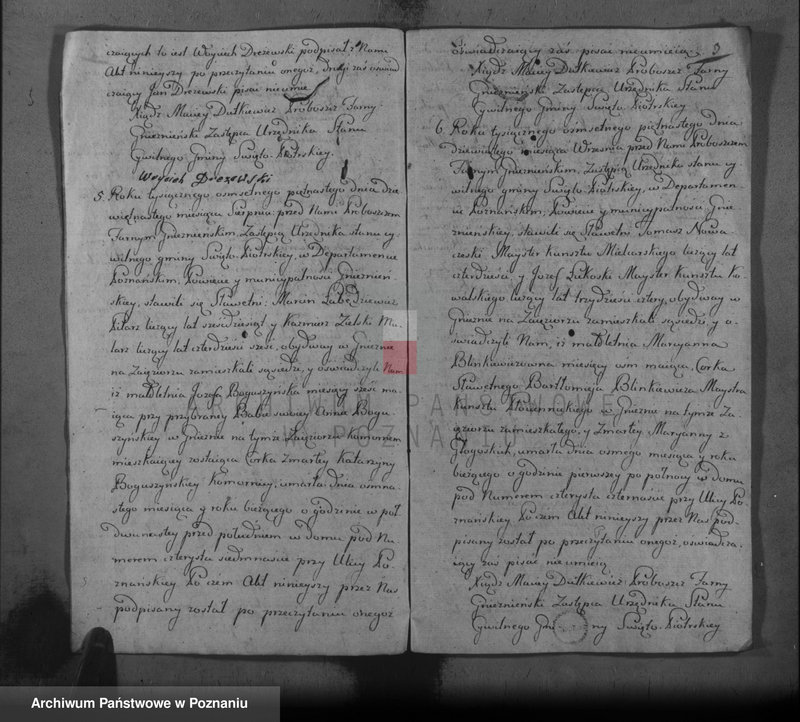 czaiących to iest Woyciech Drezewski podpisał z Nami
Akt ninieyszy po przeczytaniu onegoż, drugi zaś oswiad
czaiący Jan Drezewski pisać nieumie
Xiądz Maciey Dutkiewicz Proboszcz Farny
Gnieznieński Zastępca Urzędnika Stanu
Cywilnego Gminy Swięto-Piotrskiey.
Woyciech Drezewski
5 Roku tysiącznego osmsetnego piętnastego dnia dzie
więtnastego miesiąca Sierpnia przed Nami Proboszczem
Farnym Gnieznieńskim Zastępcą Urzędnika stanu cy
wilnego gminy Swięto-Piotrskiey, w Departamencie
Poznańskim, Powiecie y municypalnosci Gnieznien-
skiey, stawili się Sławetni: Marcin Łabędziewicz
liczący lat szescdziesiąt y Kazmierz Zielski Mu
larz liczący lat czterdziesci szesc, obydway w Gnieznie
na Zaięziorzu zamieszkali sąsiedzi, y oswiadczyli Nam
iż małoletnia Jozefa Boguszynska miesięcy szesc ma
iąca przy przybraney Babie swoiey Annie Bogu
szynskiey w Gnieznie na tymże Zaięziorzu komornem
mieszkaiącey zostaiąca Corka zmarłey Katarzyny
Boguszynskiey Komornicy, umarła dnia osmna-
stego miesiąca y roku bieżącego o godzinie w poł
dwunastey przed południem w domu pod Nu
merem czterysta siedmnascie przy Ulicy Po-
znańskiey. Po czem Akt ninieyszy przez Nas
podpisany został po przeczytaniu onegoż
3
oświadczaiący zaś pisać nieumieią.
Xiądz Maciey Dutkiewicz Proboszcz Farny
Gnieznieński Zastępca Urzędnika Stanu
Cywilnego Gminy Swięto-Piotrskiey
6. Roku tysiącznego osmsetnego piętnastego dnia
Dziewiątego miesiąca Wrzesnia przed Nami Proboszczem
Farnym Gnieznieńskim, Zastępcą Urzędnika stanu cy
wilnego gminy Swięto-Piotrskiey, w Departamen-
cie Poznańskim, Powiecie y municypalnosci Gnie-
znienskiey, stawili się Sławetni Tomasz Nowa
czeski Mayster kunsztu Mielcarskiego liczący lat
czterdziesci y Jozef Łukoski Mayster Kunsztu Ko
walskiego liczący lat trzydziesci cztery, obydway w
Gnieznie na Zaięziorzu zamieszkali sąsiedzi y o-
swiadczyli Nam, iż małoletnia Maryanna
Blinkiewiczowna miesięcy osm maiąca, Corka
Sławetnego Bartłomieja Blinkiewicza Maystra
kunsztu w Gnieznie na tymże Za
ięziorzu zamieszkałego, y Zmarłey Maryanny z
Głogoskich, umarła dnia osmego miesiąca y roku
bieżącego o godzinie pierwszey po połnocy w domu
pod Numerem czterysta czternascie przy Ulicy Po-
znańskiey. Po czem Akt ninieyszy przez Nas pod-
pisany został po przeczytaniu onegoż, oswiadcza-
iący zaś pisać nieumieią
Xiądz Maciey Dutkiewicz Proboszcz Farny
Gnieznieński Zastępca Urzędnika Stanu
Cywilnego Gminy Swięto-Piotrskiey
ARCHIWUM PAŃSTWOWE
W POZNANIU
Archiwum Państwowe w Poznaniu